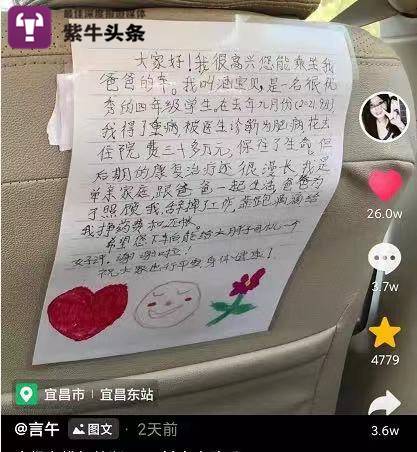 紫牛头条
大家好！我很高兴您能乘坐我
爸爸的车。我叫涵宝贝，是一名很优
秀的四年级学生在去年九月份(2021.9月)
我得了重病被医生诊断为脑病花去
住院费三十多万元，保住了生命，但
后期的康复治疗还很漫长，我是
单亲家庭跟爸爸一起生活，爸爸为
了照顾我，辞掉工，来跑滴滴给
我挣药费和还账
希望您下车后能给司机一个
好评，谢谢啦！
祝大家出行平安身体健康！
26.0w
3.7w
4779
3.6w
宜昌市 宜昌东站
@言午 图文 · 2天前